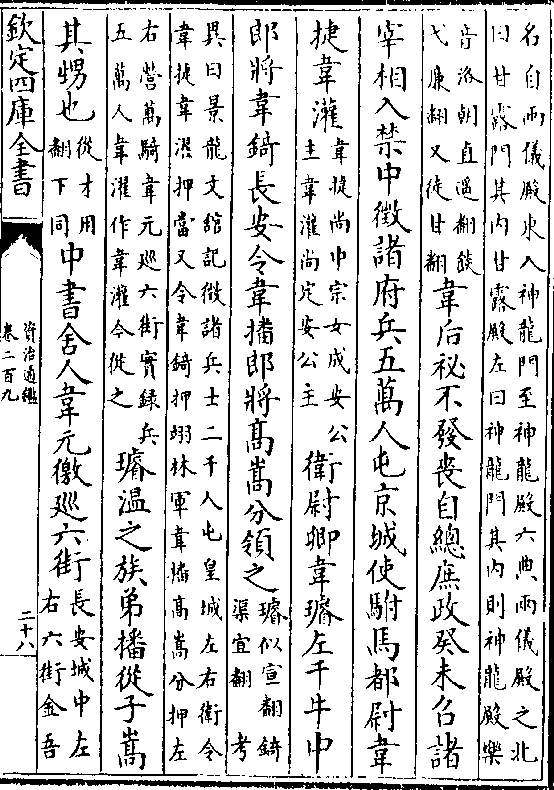 名自兩儀殿東入神龍門至神龍殿六典兩儀殿之北
曰甘露門其内甘露殿左曰神龍門其内則神龍殿樂
音洛朝直遥翻燄
弋廉翻又徒甘翻
韋后祕不發喪自總庶政癸未召諸
宰相入禁中徵諸府兵五萬人屯京城使駙馬都尉韋
捷韋灌
韋捷尚中宗女成安公
主韋灌尚定安公主
衛尉卿韋璿左千牛中
郎將韋錡長安令韋播郎將髙嵩分領之
璿似宣翻錡
渠宜翻 考
異曰景龍文館記徵諸兵士二千人屯皇城左右衛令
韋捷韋濯押當又令韋錡押翊林軍韋播高嵩分押左
右營萬騎韋元廵六街實録兵
五萬人韋濯作韋灌今從之
璿温之族弟播從子嵩
其甥也
從才用
翻下同
中書舍人韋元徼廵六街
長安城中左
右六街金吾
欽定四庫全書
資治通鑑
卷二百九
二十八